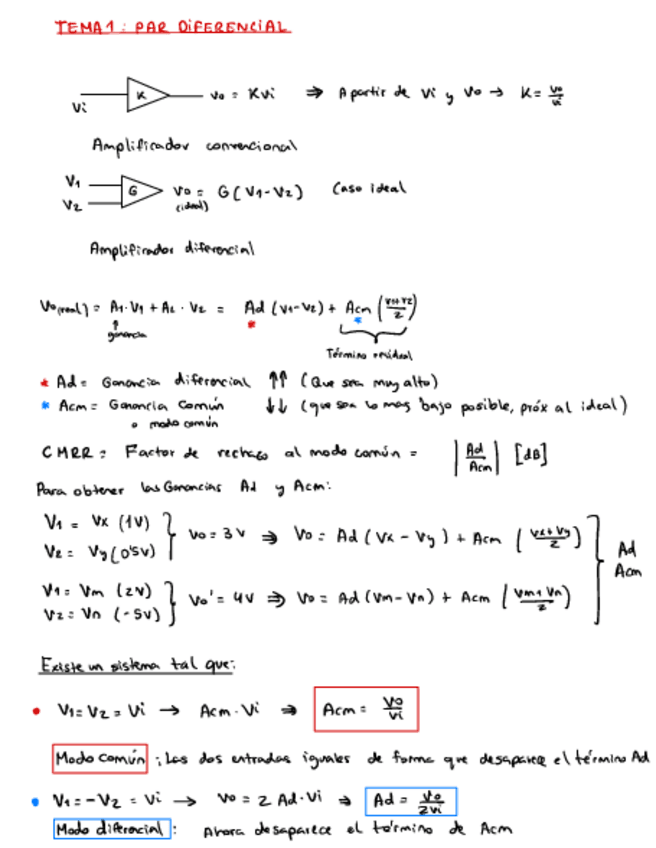 TEMA 1: PAR DIFERENCIAL
Vi K Vo = KVi ⇒ A partir de Vi y Vo → K = Vo/Vi
Amplificador convencional
V1 V2 G Vo = G(V1-V2) Caso ideal
(ideal)
Amplificador diferencial
Vo(real) = A1·V1 + A2·V2 = Ad (V1-V2) + Acm (V1+V2/2)
↑ ganancia * *
Término residual
* Ad = Ganancia diferencial ↑↑ (Que sea muy alto)
* Acm = Ganancia Común ↓↓ (que sea lo mas bajo posible, próx al ideal)
o modo común
CMRR = Factor de rechazo al modo común = |Ad/Acm| [dB]
Para obtener las Ganancias Ad y Acm:
V1 = Vx (1V)
V2 = Vy (0'5V) } Vo = 3V ⇒ Vo = Ad (Vx - Vy) + Acm (Vx+Vy/2)
V1 = Vm (2V)
V2 = Vn (-5V) } Vo' = 4V ⇒ Vo = Ad (Vm-Vn) + Acm (Vm+Vn/2)
} Ad
Acm
Existe un sistema tal que:
• V1 = V2 = Vi → Acm·Vi ⇒ Acm = Vo/Vi
Modo común: Las dos entradas iguales de forma que desaparece el término Ad
• V1 = -V2 = Vi → Vo = 2 Ad·Vi ⇒ Ad = Vo/2Vi
Modo diferencial: Ahora desaparece el término de Acm